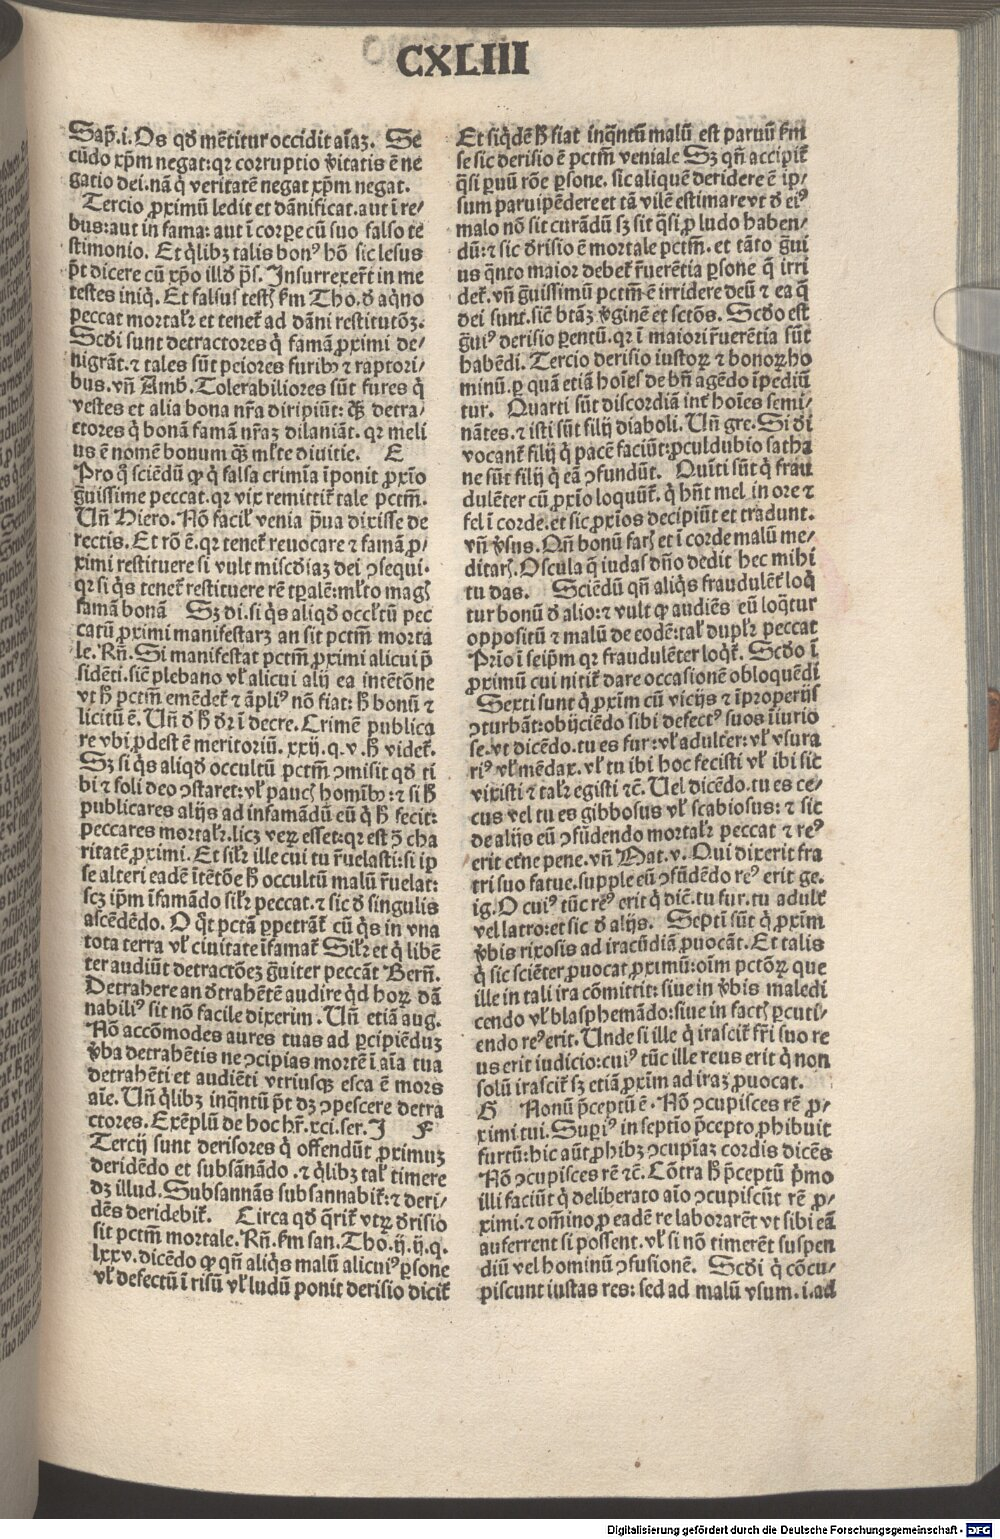 CXLIII
Sap̃.i.Os qđ mẽtitur occidit aĩaz. Se
cũdo xp̃m negat:qr corruptio v̾itatis ẽ ne
gatio dei.nã q̇ veritatẽ negat xp̃m negat.
Tercio ꝓximũ ledit et dãnificat.aut ĩ re/
bus:aut in fama: aut ĩ corpe cũ suo falso te
stimonio. Et q̇libꝫ talis bonꝰ hõ sic lesus
p̃t dicere cũ xp̃o illđ p̃s. Insurrexer̃t in me
testes iniq̇. Et falsus testꝭ ẜm Tho.đ aq̇no
peccat mortalr̃ et tenet̃ ad dãni restitutõꝫ.
Scđi sunt detractores q̇ famã ꝓximi de/
nigrãt.⁊ tales sũt peiores furibꝰ ⁊ raptori/
bus.vñ Amb̃.Tolerabiliores sũt fures q̇
vestes et alia bona nr̃a diripiũt: qꝫ detra/
ctores q̇ bonã famã nr̃aꝫ dilaniãt. qr meli
us ẽ nomẽ bonum qꝫ ml̃te diuitie. E
Pro q̊ sciẽdũ ꝙ q̇ falsa crimĩa ĩponit ꝓxĩo
g̃uissime peccat.qr vix remittit̃ tale pctm̃.
Uñ Hiero.Nõ facil̃ venia p̃ua dixisse de
rectis. Et rõ ẽ.qr tenet̃ reuocare ⁊ famã ꝓ/
ximi restituere si vult misc̃diaꝫ dei ꝯsequi.
qr si q̇s tenet̃ restituere rẽ tp̃alẽ:ml̃to magꝭ
famã bonã Sꝫ di.si q̇s aliqđ occl̃tũ pec
catũ ꝓximi manifestarꝫ an sit pctm̃ morta
le. Rñ. Si manifestat pctm̃ ꝓximi alicui p̃
sidẽti.siẽ plebano vl̃ alicui alij ea intẽtõne
vt ħ pctm̃ emẽdet̃ ⁊ ãpliꝰ nõ fiat: ħ bonũ ⁊
licitũ ẽ. Uñ đ ħ đr ĩ decre. Crimẽ publica
re vbi ꝓdest ẽ meritoriũ.xxij.q.v.ħ videt̃.
Sꝫ si q̇s aliqđ occultũ pctm̃ ꝯmisit qđ ti
bi ⁊ soli deo ꝯstaret: vl̃ paucꝭ homĩbꝰ:⁊ si ħ
publicares alijs ad infamãdũ eũ q̇ ħ fecit:
peccares mortalr̃.licꝫ veꝝ esset:qr est ꝯ̃ cha
ritatẽ ꝓximi. Et silr̃ ille cui tu r̃uelasti:si ip̃
se alteri eadẽ ĩtẽtõe ħ occultũ malũ r̃uelat:
scꝫ ip̃m ĩfamãdo silr̃ peccat.⁊ sic đ singulis
ascẽdẽdo. O q̊t pctã ꝑpetrãt̃ cũ q̇s in vna
tota terra vl̃ ciuitate ĩfamat̃ Silr̃ et q̇ libẽ
ter audiũt detractõeꝫ g̃uiter peccãt Bern̄.
Detrahere an đtrahẽtẽ audire qđ hoꝝ dã
nabiliꝰ sit nõ facile dixerim.Uñ etiã aug.
Nõ accõmodes aures tuas ad ꝑcipiẽduꝫ
v̾ba detrahẽtis ne ꝯcipias mortẽ ĩ aĩa tua
detrahẽti et audiẽti vtriusqꝫ esca ẽ mors
aĩe. Uñ q̇libꝫ inq̊ntũ p̃t dꝫ ꝯpescere detra
ctores. Exẽplũ de hoc hr̃.xci.ser.I F
Tercij sunt derisores q̇ offendũt ꝓximuꝫ
deridẽdo et subsãnãdo.⁊ q̇libꝫ tal̃ timere
dꝫ illud.Subsannãs subsannabit̃:⁊ deri/
dẽs deridebit̃. Circa qđ q̃rit̃ vtꝝ đrisio
sit pctm̃ mortale. Rñ. ẜm san.Tho.ij.ij.q.
lxxv.dicẽdo ꝙ qñ aliq̇s malũ alicuiꝰ ꝑsone
vl̃ defectũ ĩ risũ vl̃ ludũ ponit derisio dicit̃
Et siq̇dẽ ħ fiat inq̊ntũ malũ est paruũ ẜm
se sic derisio ẽ pctm̃ veniale Sꝫ qñ accipit̃
q̃si ꝑuũ rõe ꝑsone. sic aliquẽ deridere ẽ ip̃/
sum paruipẽdere et tã vilẽ estimare vt đ eiꝰ
malo nõ sit curãdũ sꝫ sit q̃si ꝓ ludo haben/
dũ:⁊ sic đrisio ẽ mortale pctm̃.et tãto g̃ui
us q̊nto maior debet̃ r̃uerẽtia ꝑsone q̃ irri
det̃.vñ g̃uissimũ pctm̃ ẽ irridere deũ ⁊ ea q̃
dei sunt.siẽ btãꝫ v̾ginẽ et sctõs. Scđo est
g̃uiꝰ derisio ꝑentũ.qr ĩ maiori r̃uerẽtia sũt
habẽdi. Tercio derisio iustoꝝ ⁊ bonoꝝ ho
minũ.ꝑ quã etiã hoĩes de bñ agẽdo ĩpediũ
tur. Quarti sũt discordiã int̃ hoĩes semi/
nãtes.⁊ isti sũt filij diaboli.Uñ gre.Si đi
vocant̃ filij q̇ pacẽ faciũt:ꝓculdubio satha
ne sũt filij q̇ eã ꝯfundũt. Quĩti sũt q̇ frau
dulẽter cũ ꝓxĩo loquũt̃.q̇ hñt mel in ore ⁊
fel ĩ corde.et sic ꝓxĩos decipiũt et tradunt.
vñ v̾sus.Qñ bonũ farꝭ et ĩ corde malũ me/
ditarꝭ.Oscula q̃ iudas dño dedit hec mihi
tu das. Sciẽdũ qñ aliq̇s fraudulẽt̃ loq̇
tur bonũ đ alio:⁊ vult ꝙ audiẽs eũ loq̃tur
oppositũ ⁊ malũ de eodẽ:tal̃ duplr̃ peccat
Prĩo ĩ seip̃m qr fraudulẽter loq̇t̃. Scđo ĩ
ꝓximũ cui nitit̃ dare occasionẽ obloquẽdi
Sexti sunt q̇ ꝓxĩm cũ vicijs ⁊ ĩproperijs
ꝯturbãt:obijciẽdo sibi defectꝰ suos iiurio
se.vt dicẽdo.tu es fur:vl̃ adulter:vl̃ vsura
riꝰ vl̃ mẽdax.vl̃ tu ibi hoc fecisti vl̃ ibi sic
vixisti ⁊ talr̃ egisti ⁊c̃. Uel dicẽdo.tu es ce/
cus vel tu es gibbosus vl̃ scabiosus: ⁊ sic
de alijs eũ ꝯfũdendo mortalr̃ peccat ⁊ reꝰ
erit etne pene.vñ Mat.v. Qui dixerit fra
tri suo fatue.supple eũ ꝯfũdẽdo reꝰ erit ge.
ig.O cuiꝰ tũc reꝰ erit q̇ dic̃.tu fur.tu adult̃
vel latro:et sic đ alijs. Septĩ sũt q̇ ꝓxĩm
v̾bis rixosis ad iracũdiã ꝓuocãt.Et talis
q̇ sic sciẽter ꝓuocat ꝓximũ:oĩm pctõꝝ que
ille in tali ira cõmittit: siue in v̾bis maledi
cendo vl̃ blasphemãdo:siue in factꝭ ꝑcuti/
endo reꝰ erit.Unde si ille q̇ irascit̃ fr̃i suo re
us erit iudicio:cuiꝰ tũc ille reus erit q̇ non
solũ irascit̃ sꝫ etiã ꝓxĩm ad iraꝫ ꝓuocat.
G Nonũ p̃ceptũ ẽ.Nõ ꝯcupisces rẽ ꝓ/
ximi tui.Suꝑiꝰ in septĩo p̃cepto ꝓhibuit
furtũ:hic aũt ꝓhibꝫ ꝯcupĩaꝫ cordis dicẽs
Nõ ꝯcupisces rẽ ⁊c̃. Cõtra ħ p̃ceptũ p̃mo
illi faciũt q̇ deliberato aĩo ꝯcupiscũt rẽ ꝓ/
ximi.⁊ om̃ino ꝓ eadẽ re laborarẽt vt sibi eã
auferrent si possent.vl̃ si nõ timerẽt suspen
diũ vel hominũ ꝯfusionẽ. Scđi q̇ cõcu/
piscunt iustas res: sed ad malũ vsum.i.ad
Digitalisierung gefördert durch die Deutsche Forschungsgemeinschaft - DFG